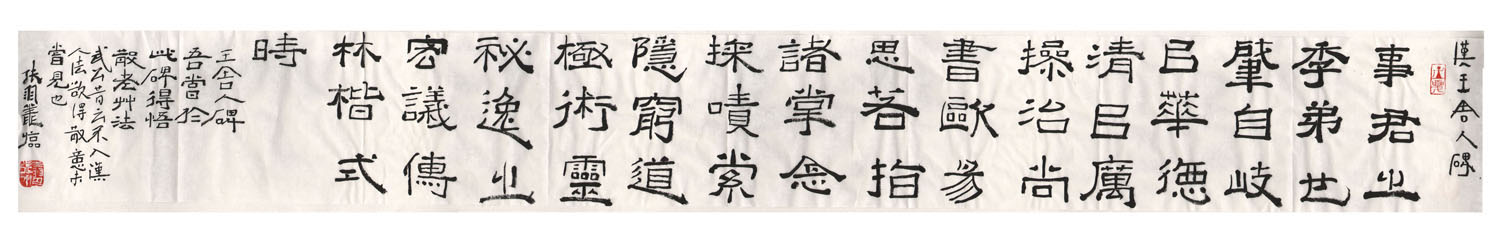 漢王舍人碑
事君之
季弟也
肇自岐
㠯華德
清㠯厲
操治尚
書歐
思若指
諸掌念
探嘖索
隱窮道
極術靈
祕逸之
宏議傳
林楷式
時
王舍人碑
吾嘗於
此碑得悟
散老艸法
或云昔云不入漢
人法欲得散意未
嘗見也
張爾臨